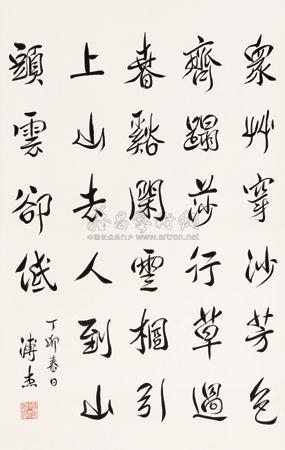 眾艸穿沙芳色
齊蹋莎行草過
春谿閑雲相引
上山去人到山
頭雲卻低
丁卯春日
溥杰
雅昌藝術網
www.artron.net